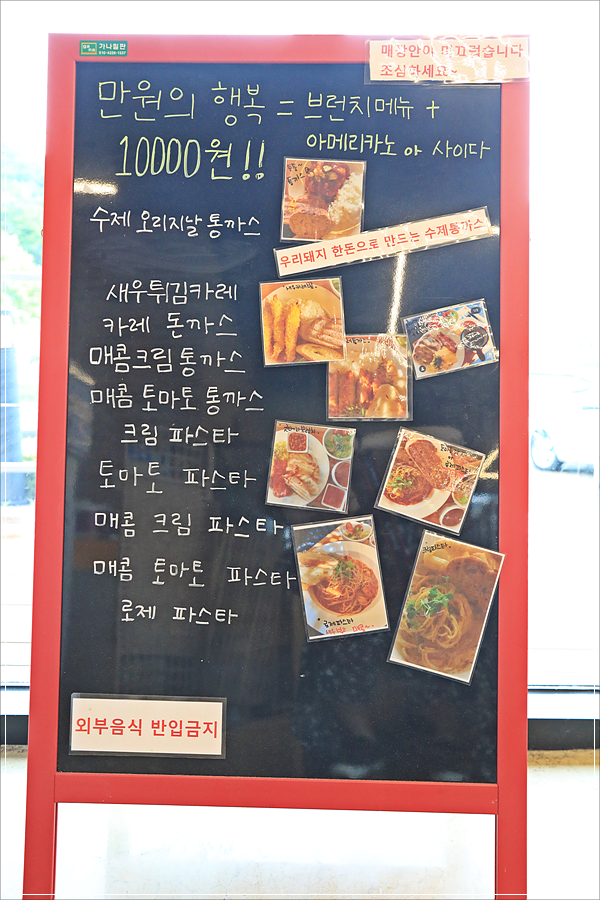 가나칠판
매장안이 미끄럽습니다
조심하세요~
만원의 행복 = 브런치메뉴 +
10000원!! 아메리카노 or 사이다
수제 오리지날 통까스
우리돼지 한돈으로 만드는 수제통까스
새우튀김카레
카레 돈까스
매콤크림통까스
매콤 토마토 통까스
크림 파스타
토마토 파스타
매콤 크림 파스타
매콤 토마토 파스타
로제 파스타
크림파스타
로제파스타
외부음식 반입금지